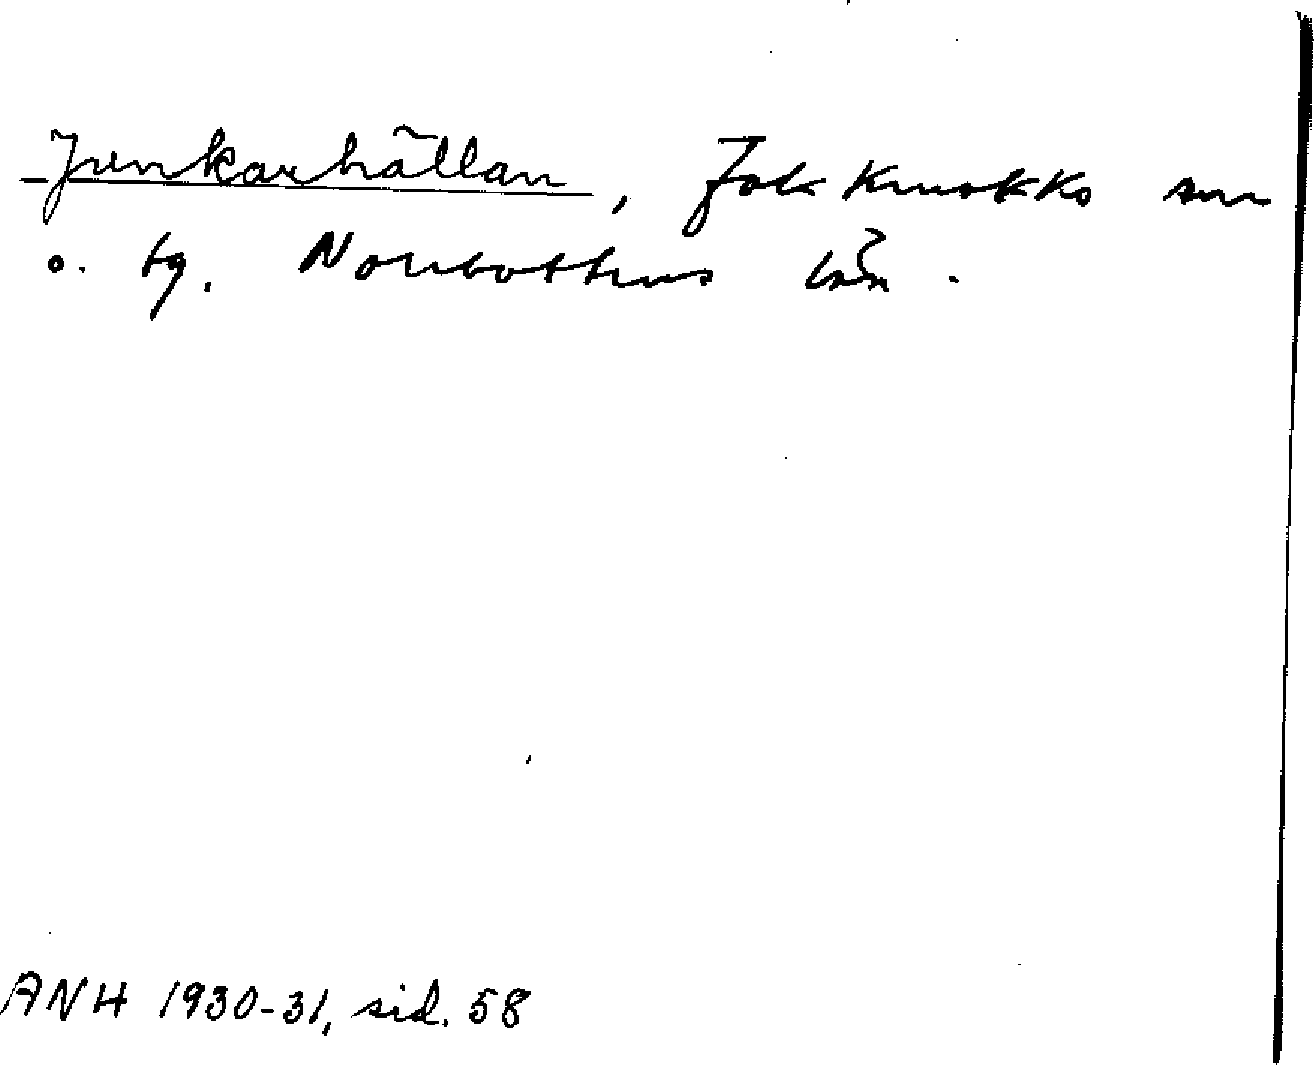 Junkarhällan, Jokkmokks sn
o. tg. Norrbottens län.
ANH 1930-31, sid. 58